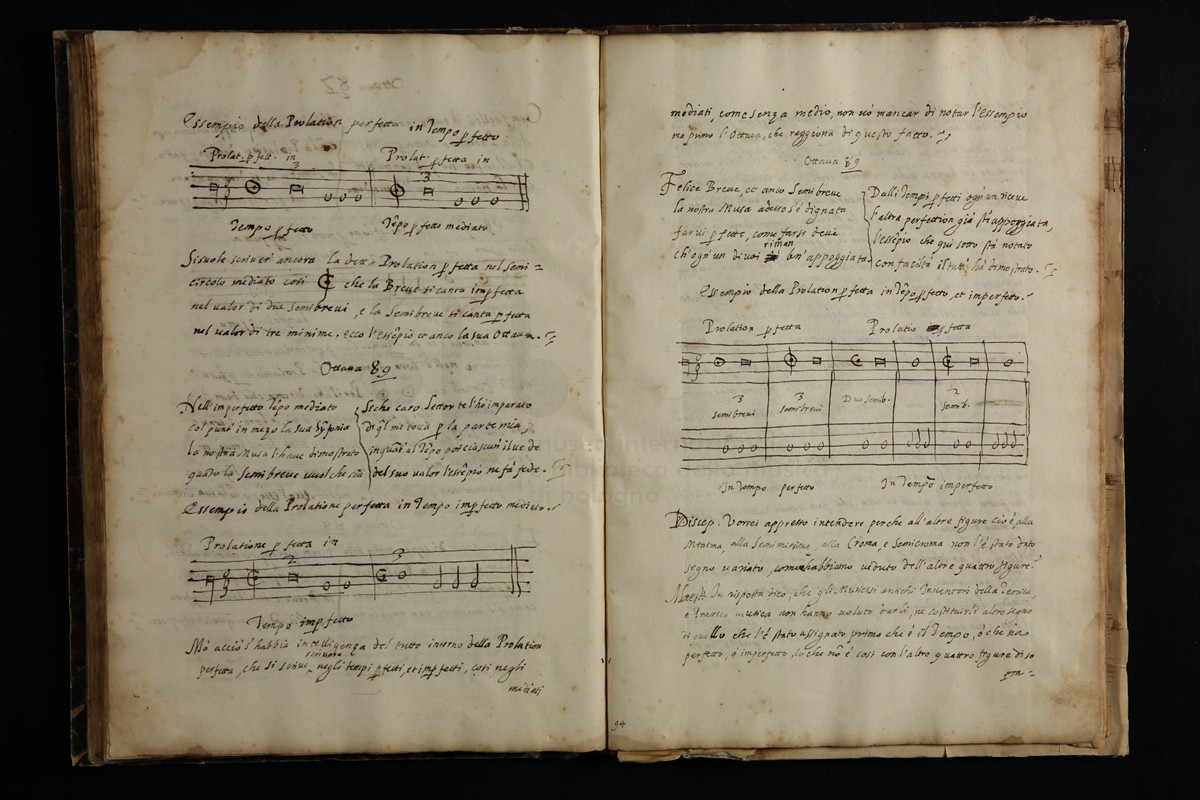 Essempio della Prolation perfetta in Tempo pfetto
Prolat. pfett. in
3
Prolat. pfetta in
3
Tempo pfetto
Tẽpo pfetto mediato
Si suole scriver' ancora la detta Prolation pfetta nel semi=
circolo mediato cosi che la Breve si canta impfetta
nel valor di due Semibrevi, e la Semibreve si canta pfetta
nel valor di tre minime, ecco l'essẽpio, et anco la sua Ottava.
Ottava 89
Nell'imperfetto Tẽpo mediato
Col punt' in mezo la sua
la nostra Musa l'have dimostrato
quato la Semibreve vuol che
Ecco caro Lettor te l'hò imparato
mi tocca p la parte mia
al Tẽpo poi ciascun
del suo valor l'essẽpio ne fà fede.
Essempio della Prolatione perfetta in Tempo impfetto mediato.
Prolatione pfetta in
2
3
Tempo impfetto
Mà acciò s'habbia intelligenza del tutto intorno della Prolation
scrivere
perfetta, che si scrive, negli tempi pfetti, et impfetti, così negli
mediati
mediati, come senza medio, non vò mancar di notar l'essempio
ma primo l'Ottava, che raggiona di questo fatto.
Ottava 89
Felice Breve, et anco Semibreve
la nostra Musa adesso s'è dignata
farvi pfette, come farsi deve
riman
ch'ogn'un di voi un'appoggiata
Dalli Tempi pfetti ogn'un riceve
l'altra perfettion già stà appoggiata,
l'essẽpio che qui sotto stà notato
con facilta il tutt' hà dimostrato.
Essempio della Prolation pfetta in Tẽpo pfetto, et imperfetto.
Prolation pfetta
Prolatio pfetta
3
semibrevi
3
semibrevi
Due semib.
2
semib.
In Tempo perfetto
In Tempo imperfetto
Discep. Vorrei appresso intendere perche all'altre figure cioè alla
Minima, alla Semiminima, alla Croma, e Semicroma non l'è stato dato
segno variato, come habbiamo veduto dell'altre quattro figure?
Maest. In risposta dico, che gli Musici antichi Inventori della Teorica,
e Prattica musica non hanno voluto darli, ne costituirli altro segno
di quello che l'è stato assignato prima che è il Tempo, ò che sia
perfetto, ò imperfetto, lo che nõ è così con l'altre quattro figure di so
pra=
94
museo internazionale
biblioteca della musica
bologna